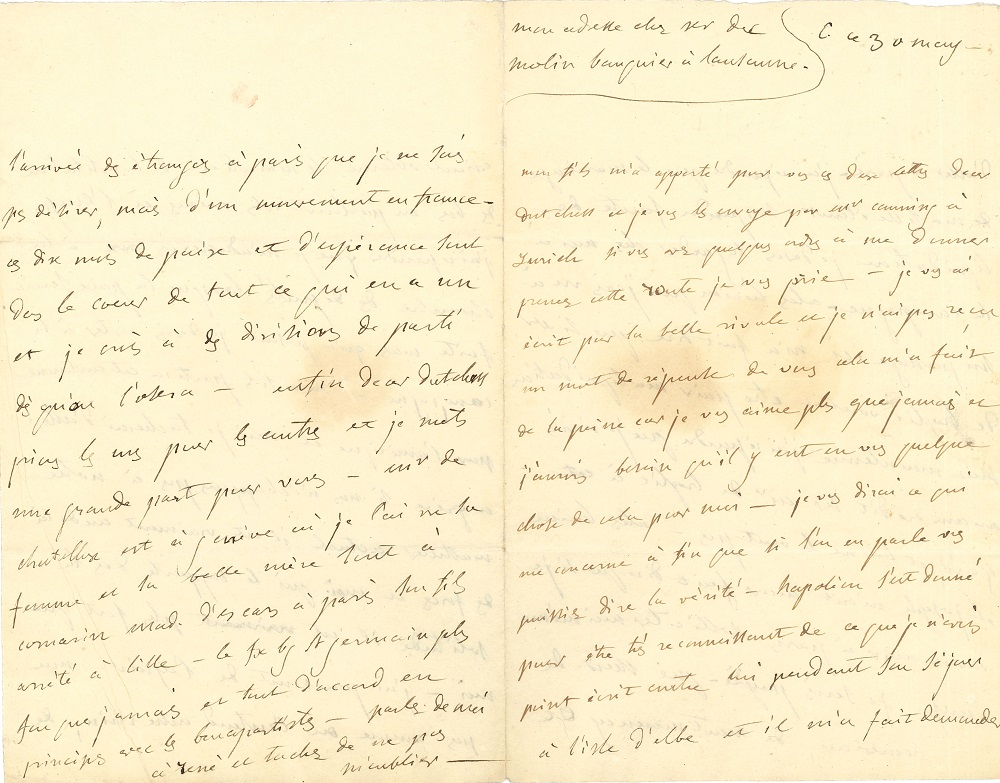 l'arrivée des étrangers à paris que je ne sais
pas désirer, mais d'un mouvement en france -
ces dix mois de paix et d'espérance sont
dans le coeur de tout ce qui en a un
et je crois à des divisions de parti
dès qu'on l'osera — enfin dear dutchess
prions les uns pour les autres et je mets
une grande part pour vous -
mr de
chatellux est à genève où je l'ai vu sa
femme et sa belle mère sont à
comarin mad. d'escars à paris son fils
arrêté à lille — le fx bg St germain plus
fou que jamais et tout d'accord en
principes avec les bonapartistes — parlez de moi
à rené et tachez de ne pas
m'oublier —
mon adresse chez mr
molin banquier à lausanne.
C ce 30 may —
mon fils m'a apporté pour vous ces deux lettres dear
dutchess et je vous les envoye par mr canning à
zurich si vous avez quelques ordres à me donner
prenez cette route je vous prie — je vous ai
écrit par la belle rivale et je n'ai pas reçu
un mot de réponse de vous cela m'a fait
de la peine car je vous aime plus que jamais et
j'aurois besoin qu'il y eut en vous quelque
chose de cela pour moi — je vous dirai ce qui
me concerne à fin que si l'on en parle vous
puissiez dire la vérité — Napoléon s'est donné
pour être très reconnaissant de ce que je n'avois
point écrit contre lui pendant son séjour
à l'isle d'elbe et il m'a fait demander